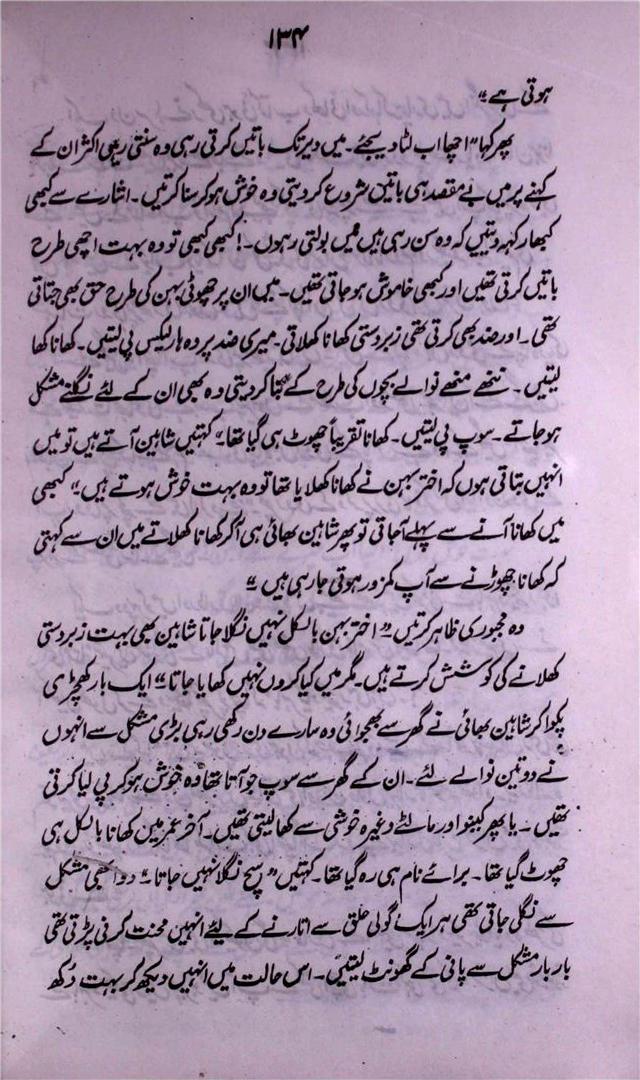 ۱۳۴
ہوتی ہے"
پھر کہا "اچھا اب لٹا دیجئے۔ میں دیر تک باتیں کرتی رہی وہ سنتی رہیں اکثر ان کے
کہنے پر میں بے مقصد ہی باتیں شروع کر دیتی وہ خوش ہو کر سنا کرتیں۔ اشارے سے کبھی
کبھار کہہ دیتیں کہ وہ سن رہی ہیں میں بولتی رہوں۔! کبھی کبھی تو وہ بہت اچھی طرح
باتیں کرتی تھیں اور کبھی خاموش ہو جاتی تھیں۔ میں ان پر چھوٹی بہن کی طرح حق بھی جتاتی
تھی۔ اور ضد بھی کرتی تھی زبردستی کھانا کھلاتی۔ میری ضد پر وہ ہارلیکس پی لیتیں۔ کھانا کھا
لیتیں۔ ننھے منھے نوالے بچوں کی طرح کے بنا کر دیتی وہ بھی ان کے لئے نگلنے مشکل
ہو جاتے۔ سوپ پی لیتیں۔ کھانا تقریباً چھوٹ ہی گیا تھا۔ کہتیں شاہین آتے ہیں تو میں
انہیں بتاتی ہوں کہ اختر بہن نے کھانا کھلایا تھا تو وہ بہت خوش ہوتے ہیں" کبھی
میں کھانا آنے سے پہلے آجاتی تو پھر شاہین بھائی ہی آکر کھانا کھلاتے میں ان سے کہتی
کہ کھانا چھوڑنے سے آپ کمزور ہوتی جا رہی ہیں"
وہ مجبوری ظاہر کرتیں" اختر بہن بالکل نہیں نگلا جاتا شاہین بھی بہت زبردستی
کھلانے کی کوشش کرتے ہیں۔ مگر میں کیا کروں نہیں کھایا جاتا" ایک بار کھچڑی
پکوا کر شاہین بھائی نے گھر سے بھجوائی وہ سارے دن رکھی رہی بڑی مشکل سے انہوں
نے دو تین نوالے لئے۔ ان کے گھر سے سوپ جو آتا تھا وہ خوش ہو کر پی لیا کرتی
تھیں۔ یا پھر کینو اور مالٹے وغیرہ خوشی سے کھا لیتی تھیں۔ آخر عمر میں کھانا بالکل ہی
چھوٹ گیا تھا۔ برائے نام ہی رہ گیا تھا۔ کہتیں "سچ نگلا نہیں جاتا۔" دوا بھی مشکل
سے نگلی جاتی تھی ہر ایک گولی حلق سے اتارنے کے لیئے انہیں محنت کرنی پڑتی تھی
بار بار مشکل سے پانی کے گھونٹ لیتیں۔ اس حالت میں انہیں دیکھ کر بہت دُکھ